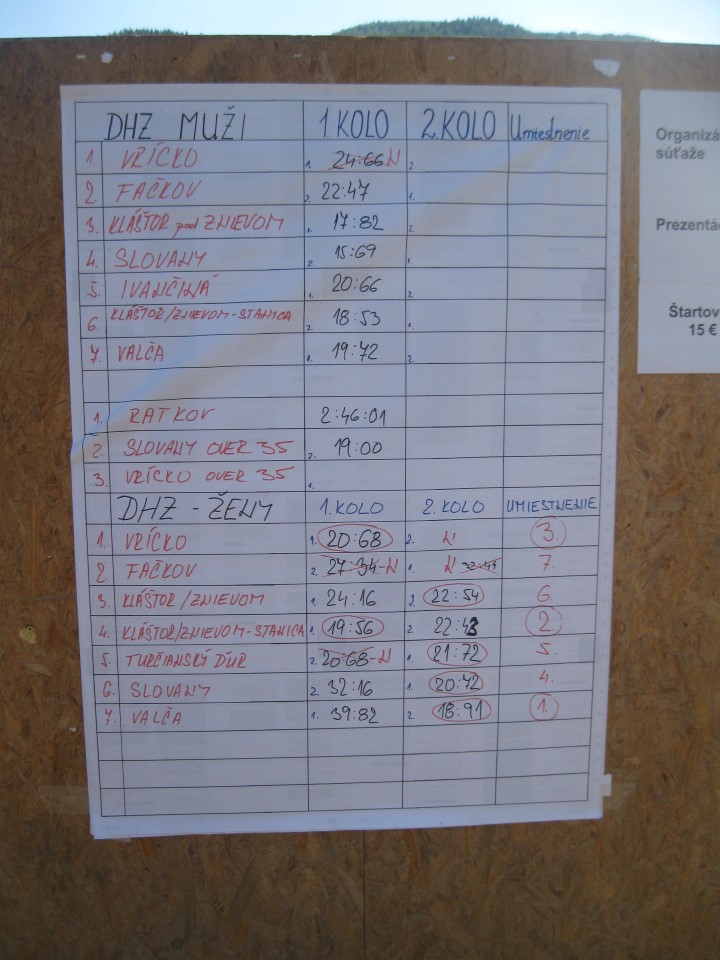 DHZ MUŽI 1.KOLO 2.KOLO Umiestnenie
1. VRÍCKO 1. 24:66 N 2.
2. FAČKOV 2. 22:47 1.
3. KLÁŠTOR pod ZNIEVOM 1. 17:82 2.
4. SLOVANY 2. 15:69 1.
5. IVANČINÁ 1. 20:66 2.
6. KLÁŠTOR/ZNIEVOM-STANICA 2. 18:53 1.
7. VALČA 1. 19:72 2.
1. RATKOV 2:46:01
2. SLOVANY OVER 35 2. 19:00
3. VRÍCKO OVER 35 1.
DHZ - ŽENY 1. KOLO 2. KOLO UMIESTNENIE
1. VRÍCKO 1. 20:68 2. N 3.
2 FAČKOV 2. 27:34-N 1. N 7.
3. KLÁŠTOR /ZNIEVOM 1. 24:16 2. 22:54 6.
4. KLÁŠTOR/ZNIEVOM-STANICA 1. 19:56 2. 22:43 2.
5. TURČIANSKÝ ĎUR 2. 20:68-N 1. 21:72 5.
6. SLOVANY 2. 32:16 1. 20:72 4.
7. VALČA 1. 39:82 2. 18:91 1.
Organizá
súťaže
Prezentác
Štartov
15 €